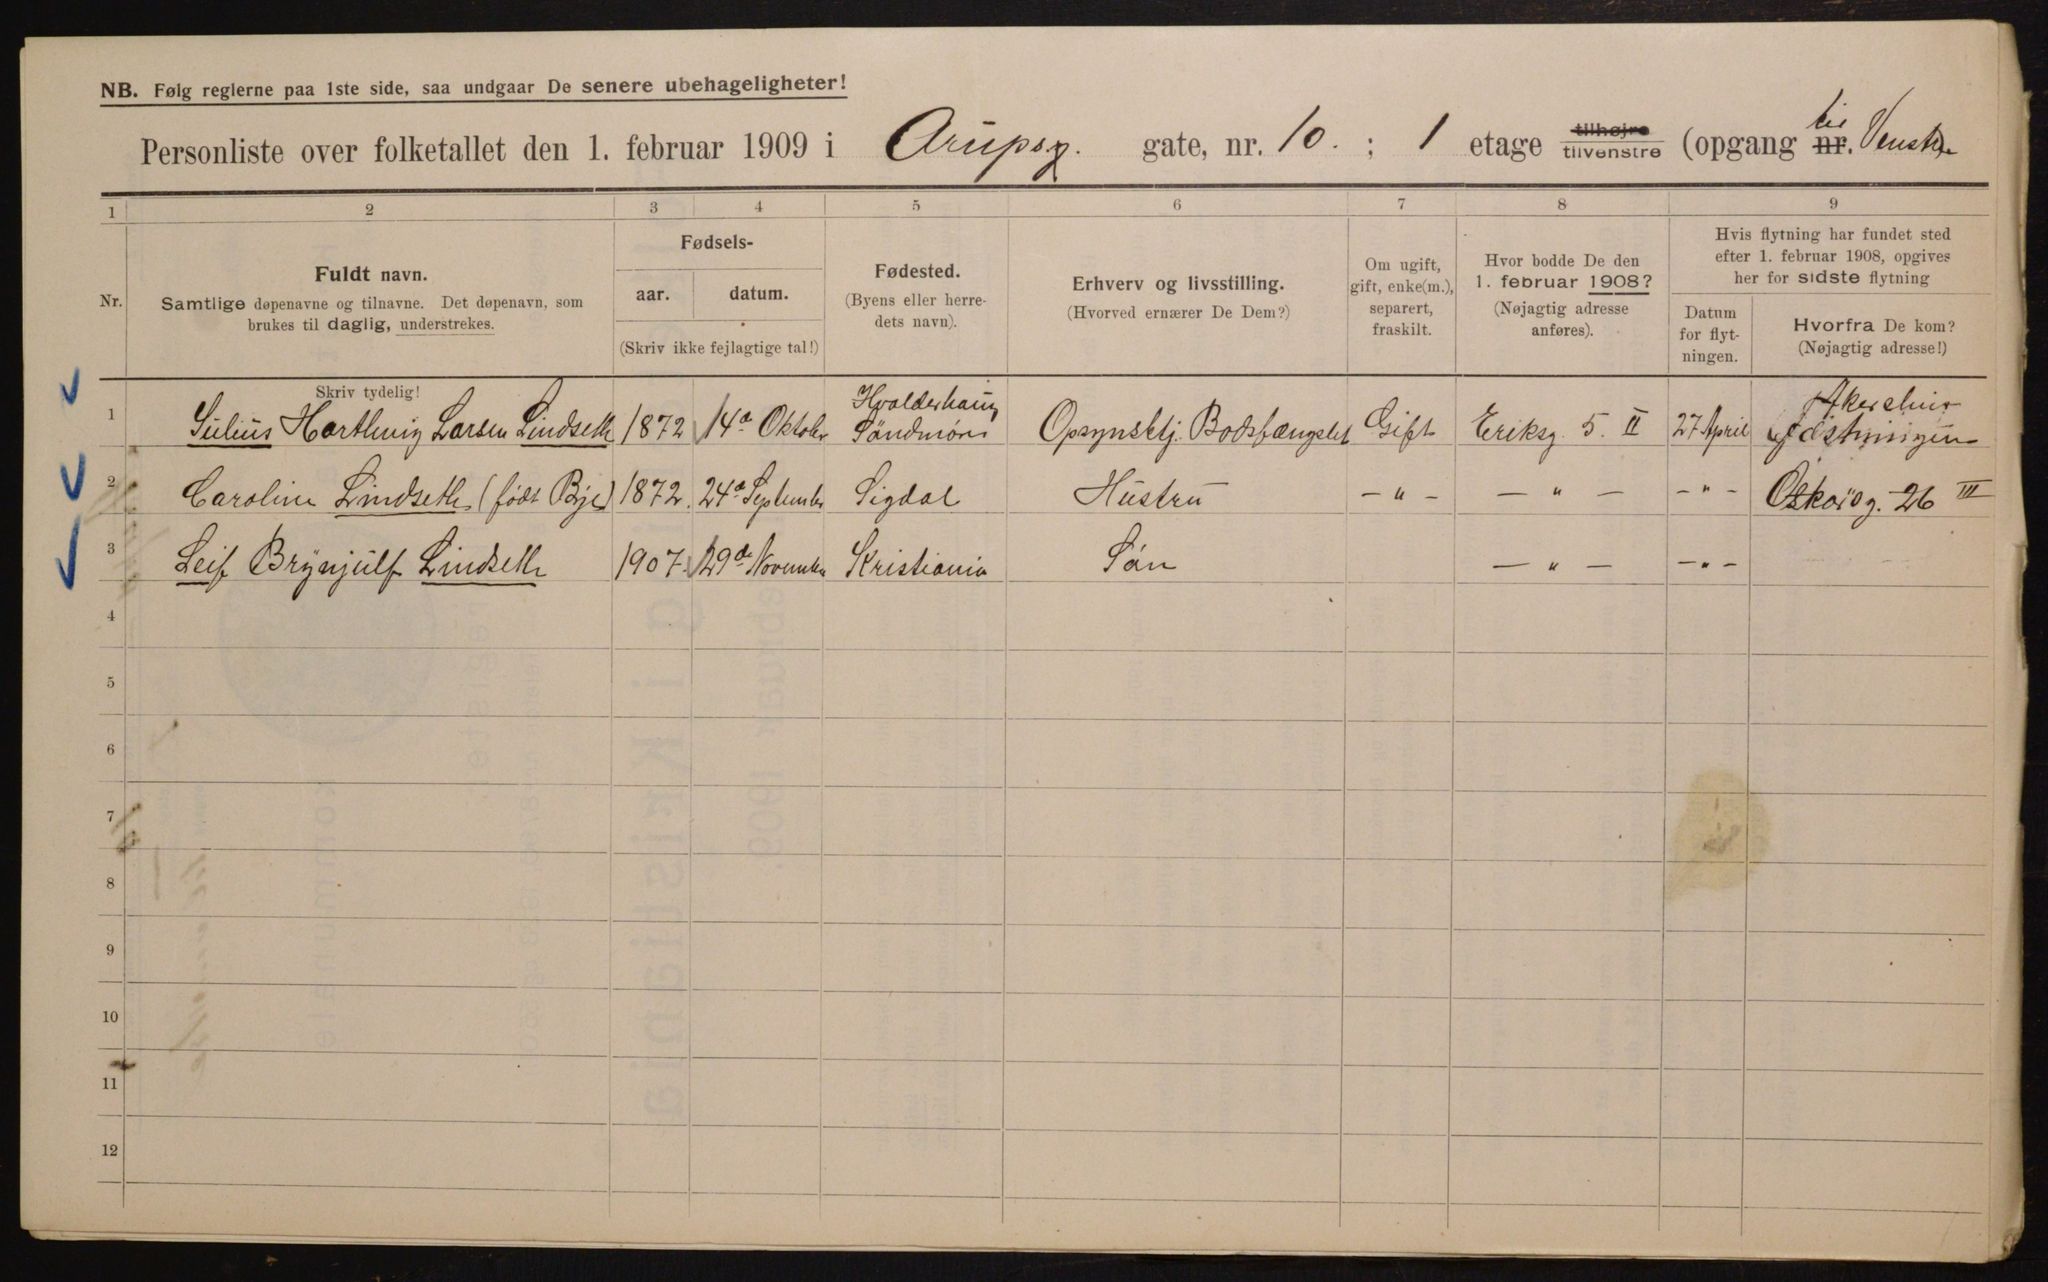 NB. Følg reglerne paa 1ste side, saa undgaar De senere ubehageligheter!
Personliste over folketallet den 1. februar 1909 i Arupsg. gate, nr. 10. ; 1 etage tilhøjre tilvenstre (opgang nr. til Venstre
1 2 3 4 5 6 7 8 9
Nr.
Fuldt navn.
Samtlige døpenavne og tilnavne. Det døpenavn, som
brukes til daglig, understrekes.
Skriv tydelig!
Fødsels-
aar. datum.
(Skriv ikke fejlagtige tal!)
Fødested.
(Byens eller herre-
dets navn).
Erhverv og livsstilling.
(Hvorved ernærer De Dem?)
Om ugift,
gift, enke(m.),
separert,
fraskilt.
Hvor bodde De den
1. februar 1908?
(Nøjagtig adresse
anføres).
Hvis flytning har fundet sted
efter 1. februar 1908, opgives
her for sidste flytning
Datum
for flyt-
ningen.
Hvorfra De kom?
(Nøjagtig adresse!)
1 Julius Harthvig Larsen Lindseth 1872 14de Oktober Søndmøre Opsynsbtj. Bodsfængslet Gift Eriksg. 5. II 27 April Akershus
2 Caroline Lindseth (født Bye) 1872. 24de September Sigdal Hustru — " — — " — — " — Oskarsg. 26 III
3 Leif Brynjulf Lindseth 1907. 29de November Kristiania Søn — " — — " —
4
5
6
7
8
9
10
11
12